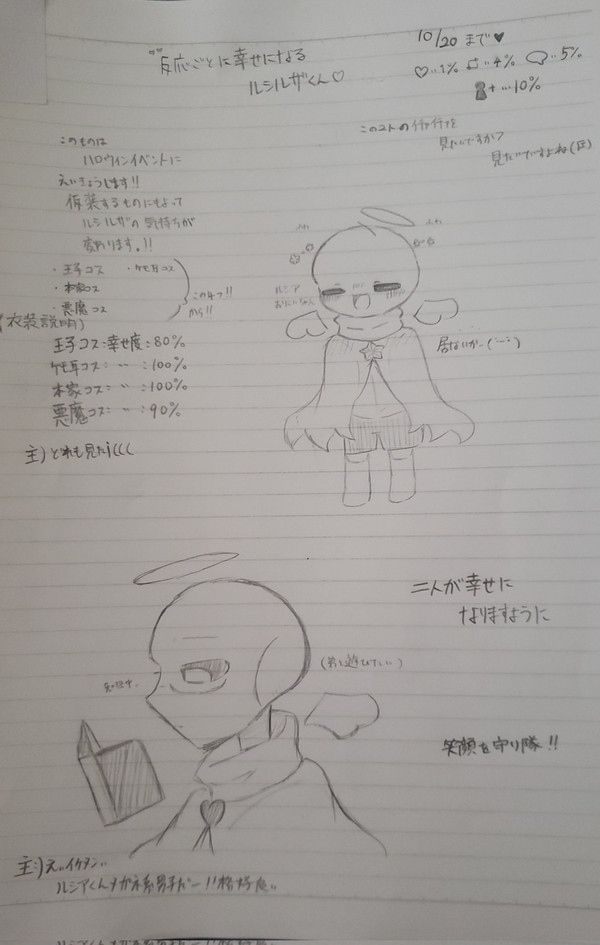 反応ごとに幸せになる
ルシルザくん♡
10/20 まで♥
♡‥1% ‥4% ‥5%
+ …10%
この2人のイチャイチャを
見たいですか?
見たいですよね(圧)
このものは
ハロウィンイベントに
えいきょうします!!
仮装するものによって
ルシルザの気持ちが
変わります。!!
・王子コス ・ケモ耳コス
・本家コス
・悪魔コス
この4つ!!
から!!
(衣装説明)
王子コス:幸せ度:80%
ケモ耳コス: 〃 :100%
本家コス: 〃 :100%
悪魔コス: 〃 :90%
主)どれも見たi(((
ルシア
おにいちゃん
居ないかー
二人が幸せに
なりますように
笑顔を守り隊!!
主:)え‥イケメン‥
ルシアくんメガネ系男子だー!!